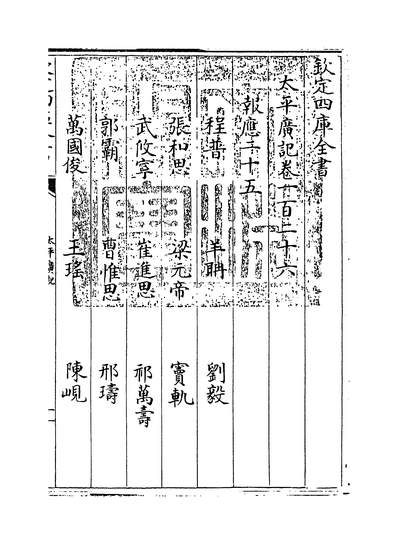 欽定四庫全書
太平廣記卷一百二十六
報應二十五
程普 羊聃 劉毅
張和思 梁元帝 竇軌
武攸寧 崔進思 祁萬壽
郭霸 曹惟思 邢璹
萬國俊 王瑤 陳峴
太平廣記